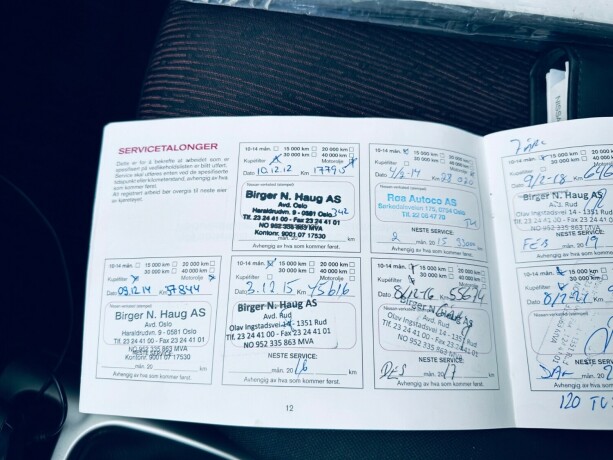 SERVICETALONGER
Dette er for å bekrefte at arbeidet som er
spesifisert på vedlikeholdslisten er blitt utført.
Service skal utføres enten ved de spesifiserte
tidspunkt eller kilometerstand, avhengig av hva
som kommer først.
All registrert arbeid bør overgå til neste eier
av kjøretøyet.
10-14 mån. 15 000 km 20 000 km
30 000 km 40 000 km
Kupéfilter Motorolje
Dato 10.12.12 Km 17795
Nissan-verksted (stempel)
Birger N. Haug AS
Avd. Oslo
Haraldrudvn. 9 - 0581 Oslo
Tlf. 23 24 41 00 - Fax 23 24 41 01
NO 952 335 863 MVA
Kontonr. 9001 07 17530
Avhengig av hva som kommer først.
10-14 mån. 15 000 km 20 000 km
30 000 km 40 000 km
Kupéfilter Motorolje
Dato 4/2-14 Km 28 020
Nissan-verksted (stempel)
Roa Autoco AS
0764 Oslo
NESTE SERVICE:
mån. 20 15 km
Avhengig av hva som kommer først.
10-14 mån. 15 000 km
30 000 km
Kupéfilter
Dato 9/2-18 Km
Birger N. Haug
Avd. Rud
Olav Ingstadsvei 14 - 1351 Rud
NESTE SERVICE:
FEB mån. 20 19
Avhengig av hva som kommer først.
10-14 mån. 15 000 km 20 000 km
30 000 km 40 000 km
Kupéfilter Motorolje
Dato 09.12.14 Km 37844
Nissan-verksted (stempel)
Birger N. Haug AS
Avd. Oslo
Haraldrudvn. 9 - 0581 Oslo
Tlf. 23 24 41 00 - Fax 23 24 41 01
NO 952 335 863 MVA
Kontonr. 9001 07 17530
mån. 20 km
Avhengig av hva som kommer først.
10-14 mån. 15 000 km 20 000 km
30 000 km 40 000 km
Kupéfilter Motorolje
Dato 3.12.15 Km 45616
Birger N. Haug AS
Avd. Rud
Olav Ingstadsvei 14 - 1351 Rud
Tlf. 23 24 41 00 - Fax 23 24 41 01
NO 952 335 863 MVA
NESTE SERVICE:
mån. 20 16 km
Avhengig av hva som kommer først.
10-14 mån. 15 000 km 20 000 km
30 000 km 40 000 km
Kupéfilter Motorolje
Dato 8/12-16 Km 55674
Birger N. Haug AS
Avd. Rud
Olav Ingstadsvei 14 - 1351 Rud
Tlf. 23 24 41 00 - Fax 23 24 41 01
NO 952 335 863 MVA
NESTE SERVICE:
DES mån. 20 17 km
Avhengig av hva som kommer først.
10-14 mån. 15 000 km
30 000 km
Kupéfilter
Dato
NESTE SERVICE:
mån. 20
Avhengig av hva som kommer først.
12